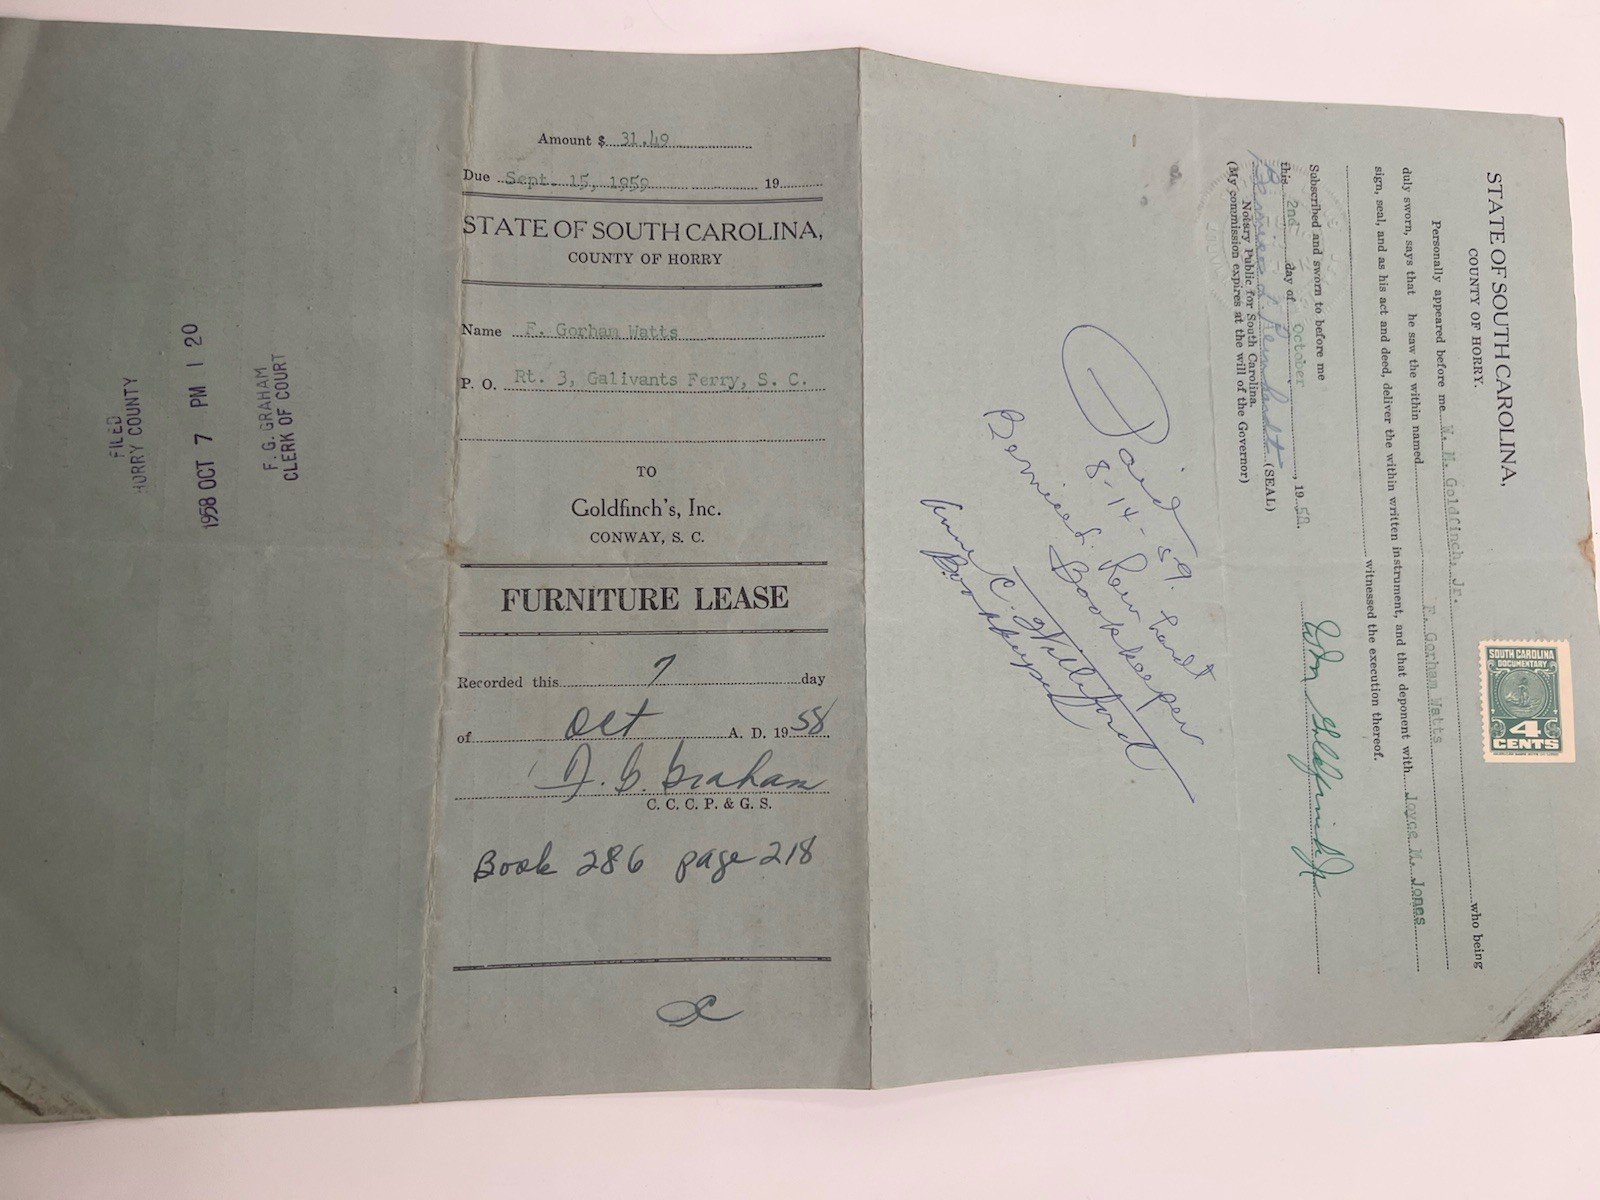 Amount $ 31.49
Due Sept. 15, 1959 19
STATE OF SOUTH CAROLINA,
COUNTY OF HORRY
Name F. Gorham Watts
P. O. Rt. 3, Galivants Ferry, S. C.
TO
Goldfinch's, Inc.
CONWAY, S. C.
FURNITURE LEASE
Recorded this 7 day
of Oct A. D. 1958.
F. G. Graham
C. C. C. P. & G. S.
Book 286 page 218
FILED
HORRY COUNTY
1958 OCT 7 PM 1 20
F. G. GRAHAM
CLERK OF COURT
STATE OF SOUTH CAROLINA,
COUNTY OF HORRY.
Personally appeared before me W. M. Goldfinch, Jr. who being
duly sworn, says that he saw the within named F. Gorham Watts
sign, seal, and as his act and deed, deliver the within written instrument, and that deponent with Joyce M. Jones
witnessed the execution thereof.
Subscribed and sworn to before me
this 2nd day of October, 1958.
Bernice L. Reinhardt (SEAL)
Notary Public for South Carolina.
(My commission expires at the will of the Governor)
WM Goldfinch Jr
SOUTH CAROLINA
DOCUMENTARY
4
CENTS
Paid
8-14-59.
Bookkeeper
C. Williford
Bookkeeper